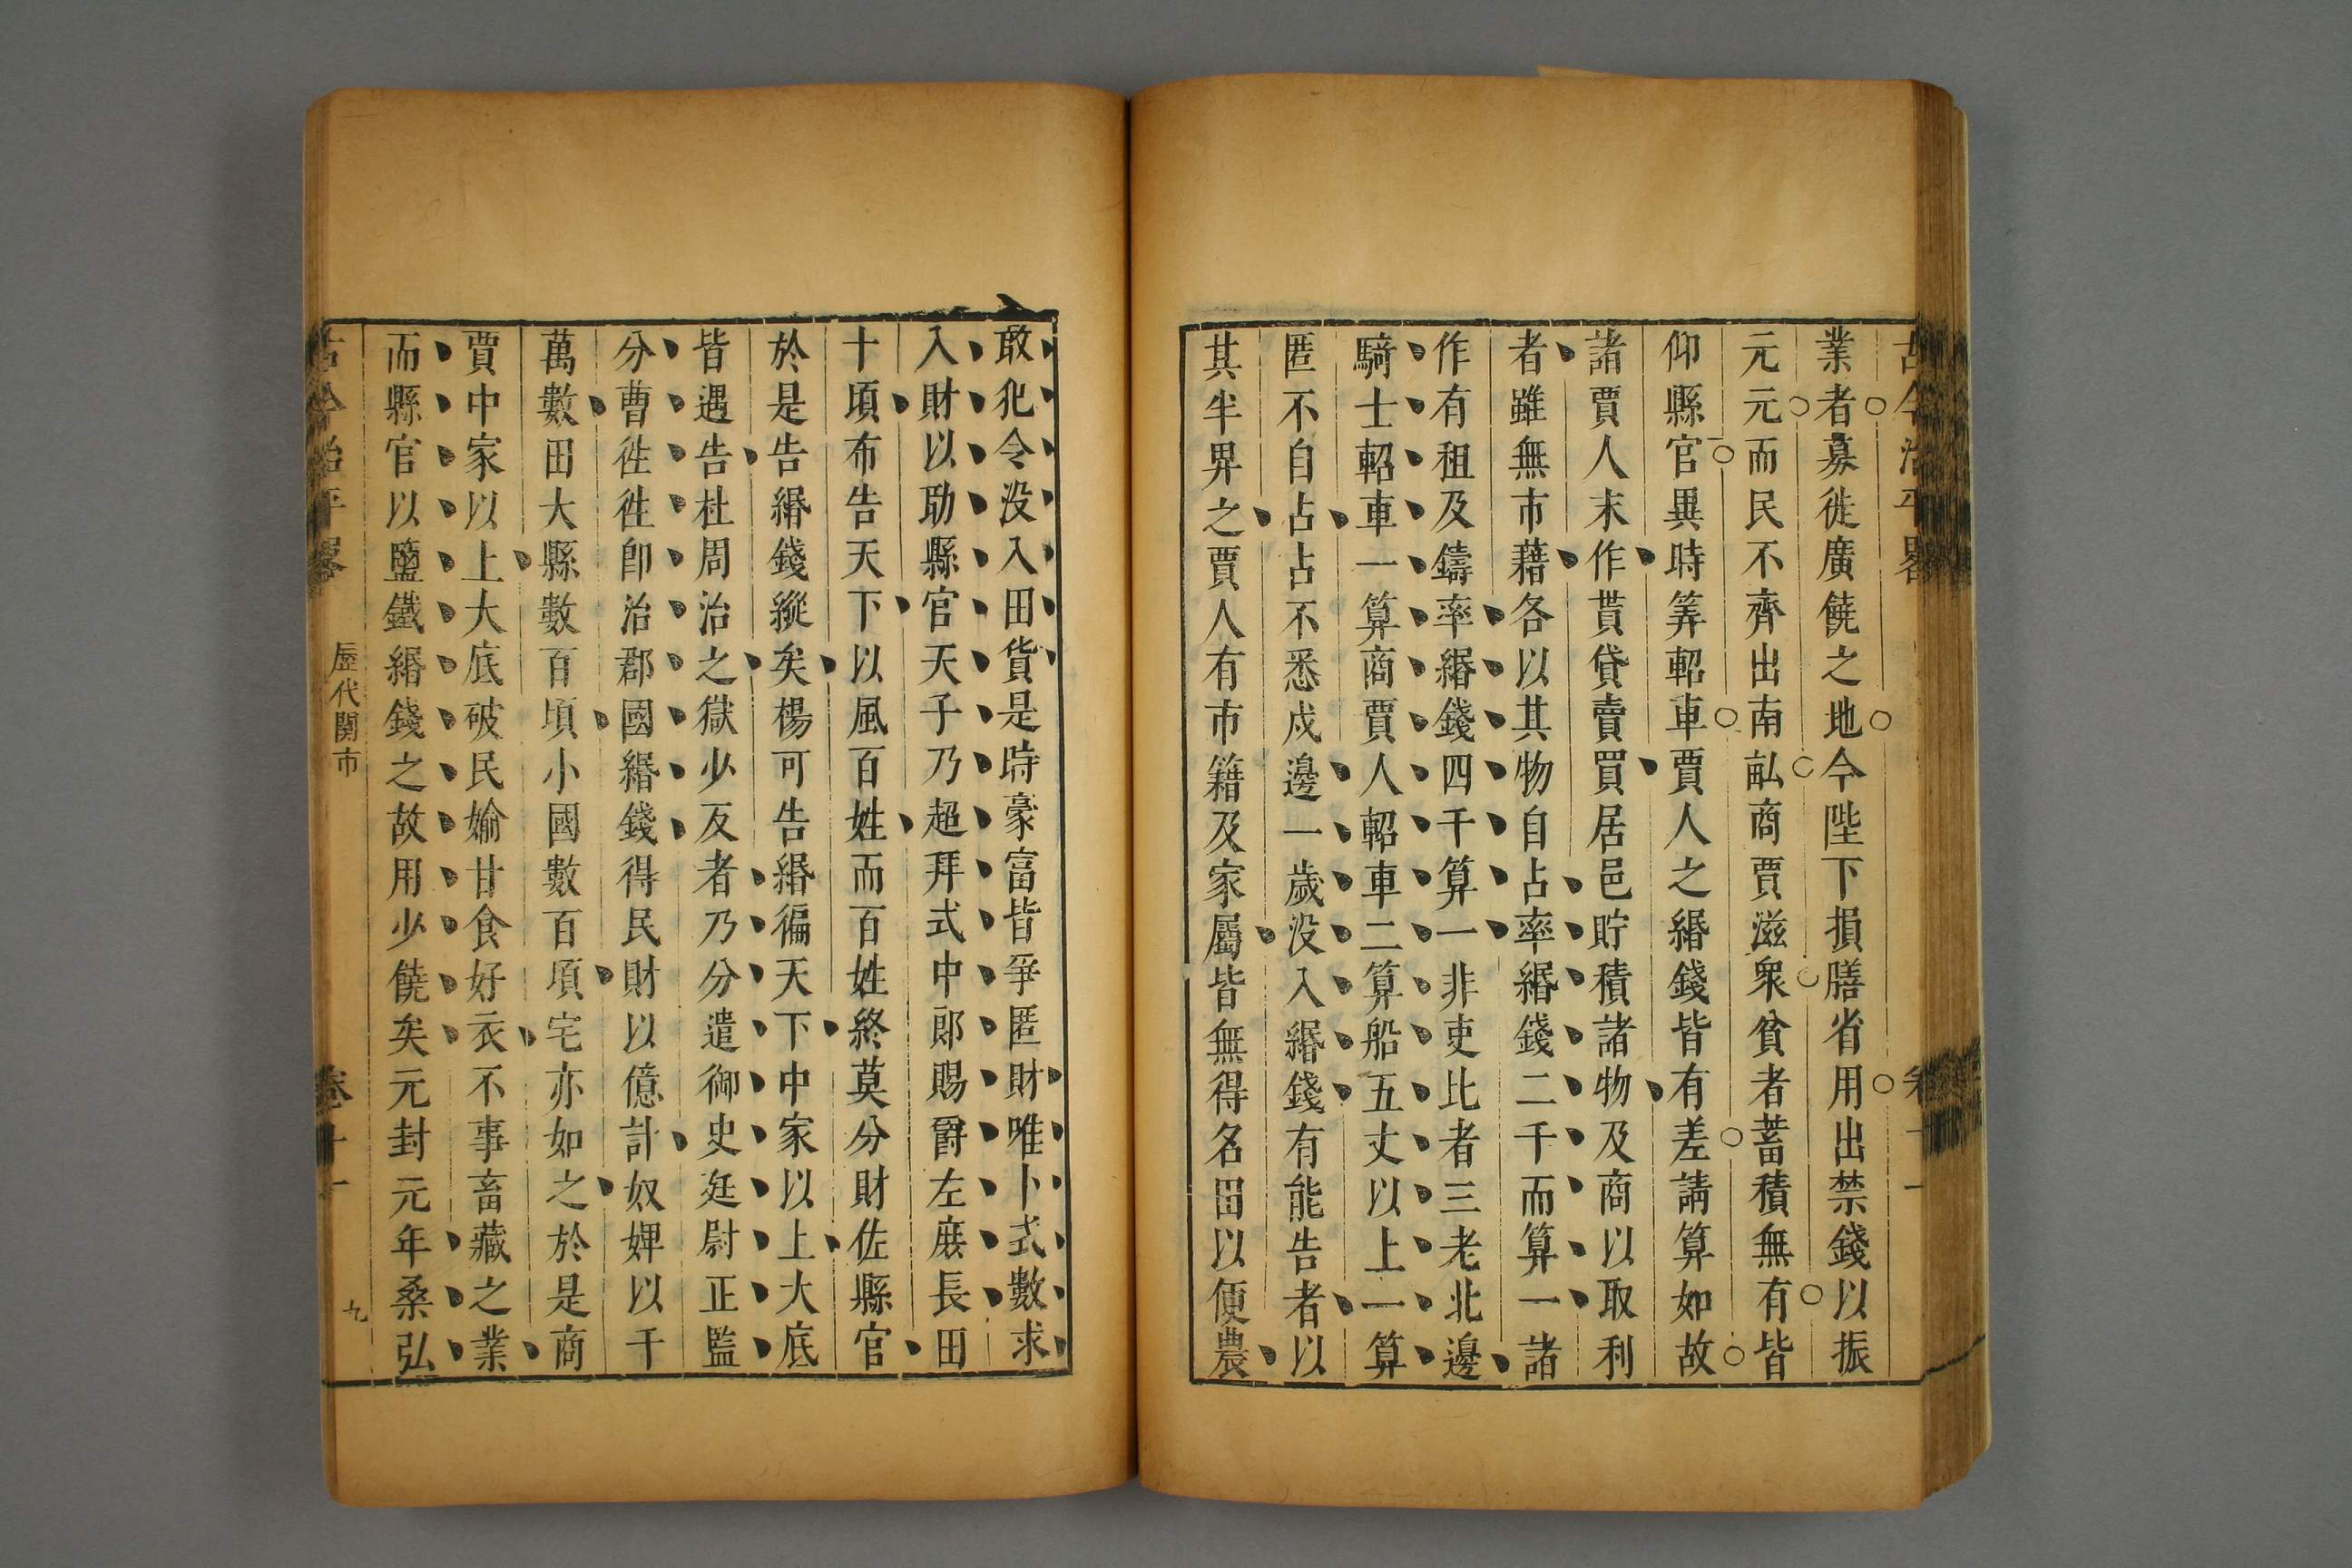 古今治平畧
卷十一
業者募徙廣饒之地今陛下損膳省用出禁錢以振
元元而民不齊出南畝商賈滋衆貧者蓄積無有皆
仰縣官異時筭軺車賈人之緡錢皆有差請算如故
諸賈人末作貰貸賣買居邑貯積諸物及商以取利
者雖無市藉各以其物自占率緡錢二千而算一諸
作有租及鑄率緡錢四千算一非吏比者三老北邊
騎士軺車一算商賈人軺車二算船五丈以上一算
匿不自占占不悉戍邊一歲没入緡錢有能告者以
其半畀之賈人有市籍及家屬皆無得名田以便農
敢犯令没入田貨是時豪富皆爭匿財唯卜式數求
入財以助縣官天子乃超拜式中郎賜爵左庶長田
十頃布告天下以風百姓而百姓終莫分財佐縣官
於是告緡錢縱矣楊可告緡徧天下中家以上大底
皆遇告杜周治之獄少反者乃分遣御史廷尉正監
分曹徃徃即治郡國緡錢得民財以億計奴婢以千
萬數田大縣數百頃小國數百頃宅亦如之於是商
賈中家以上大底破民媮甘食好衣不事畜藏之業
而縣官以鹽鐵緡錢之故用少饒矣元封元年桑弘
古今治平畧
歷代關市
卷十一
九